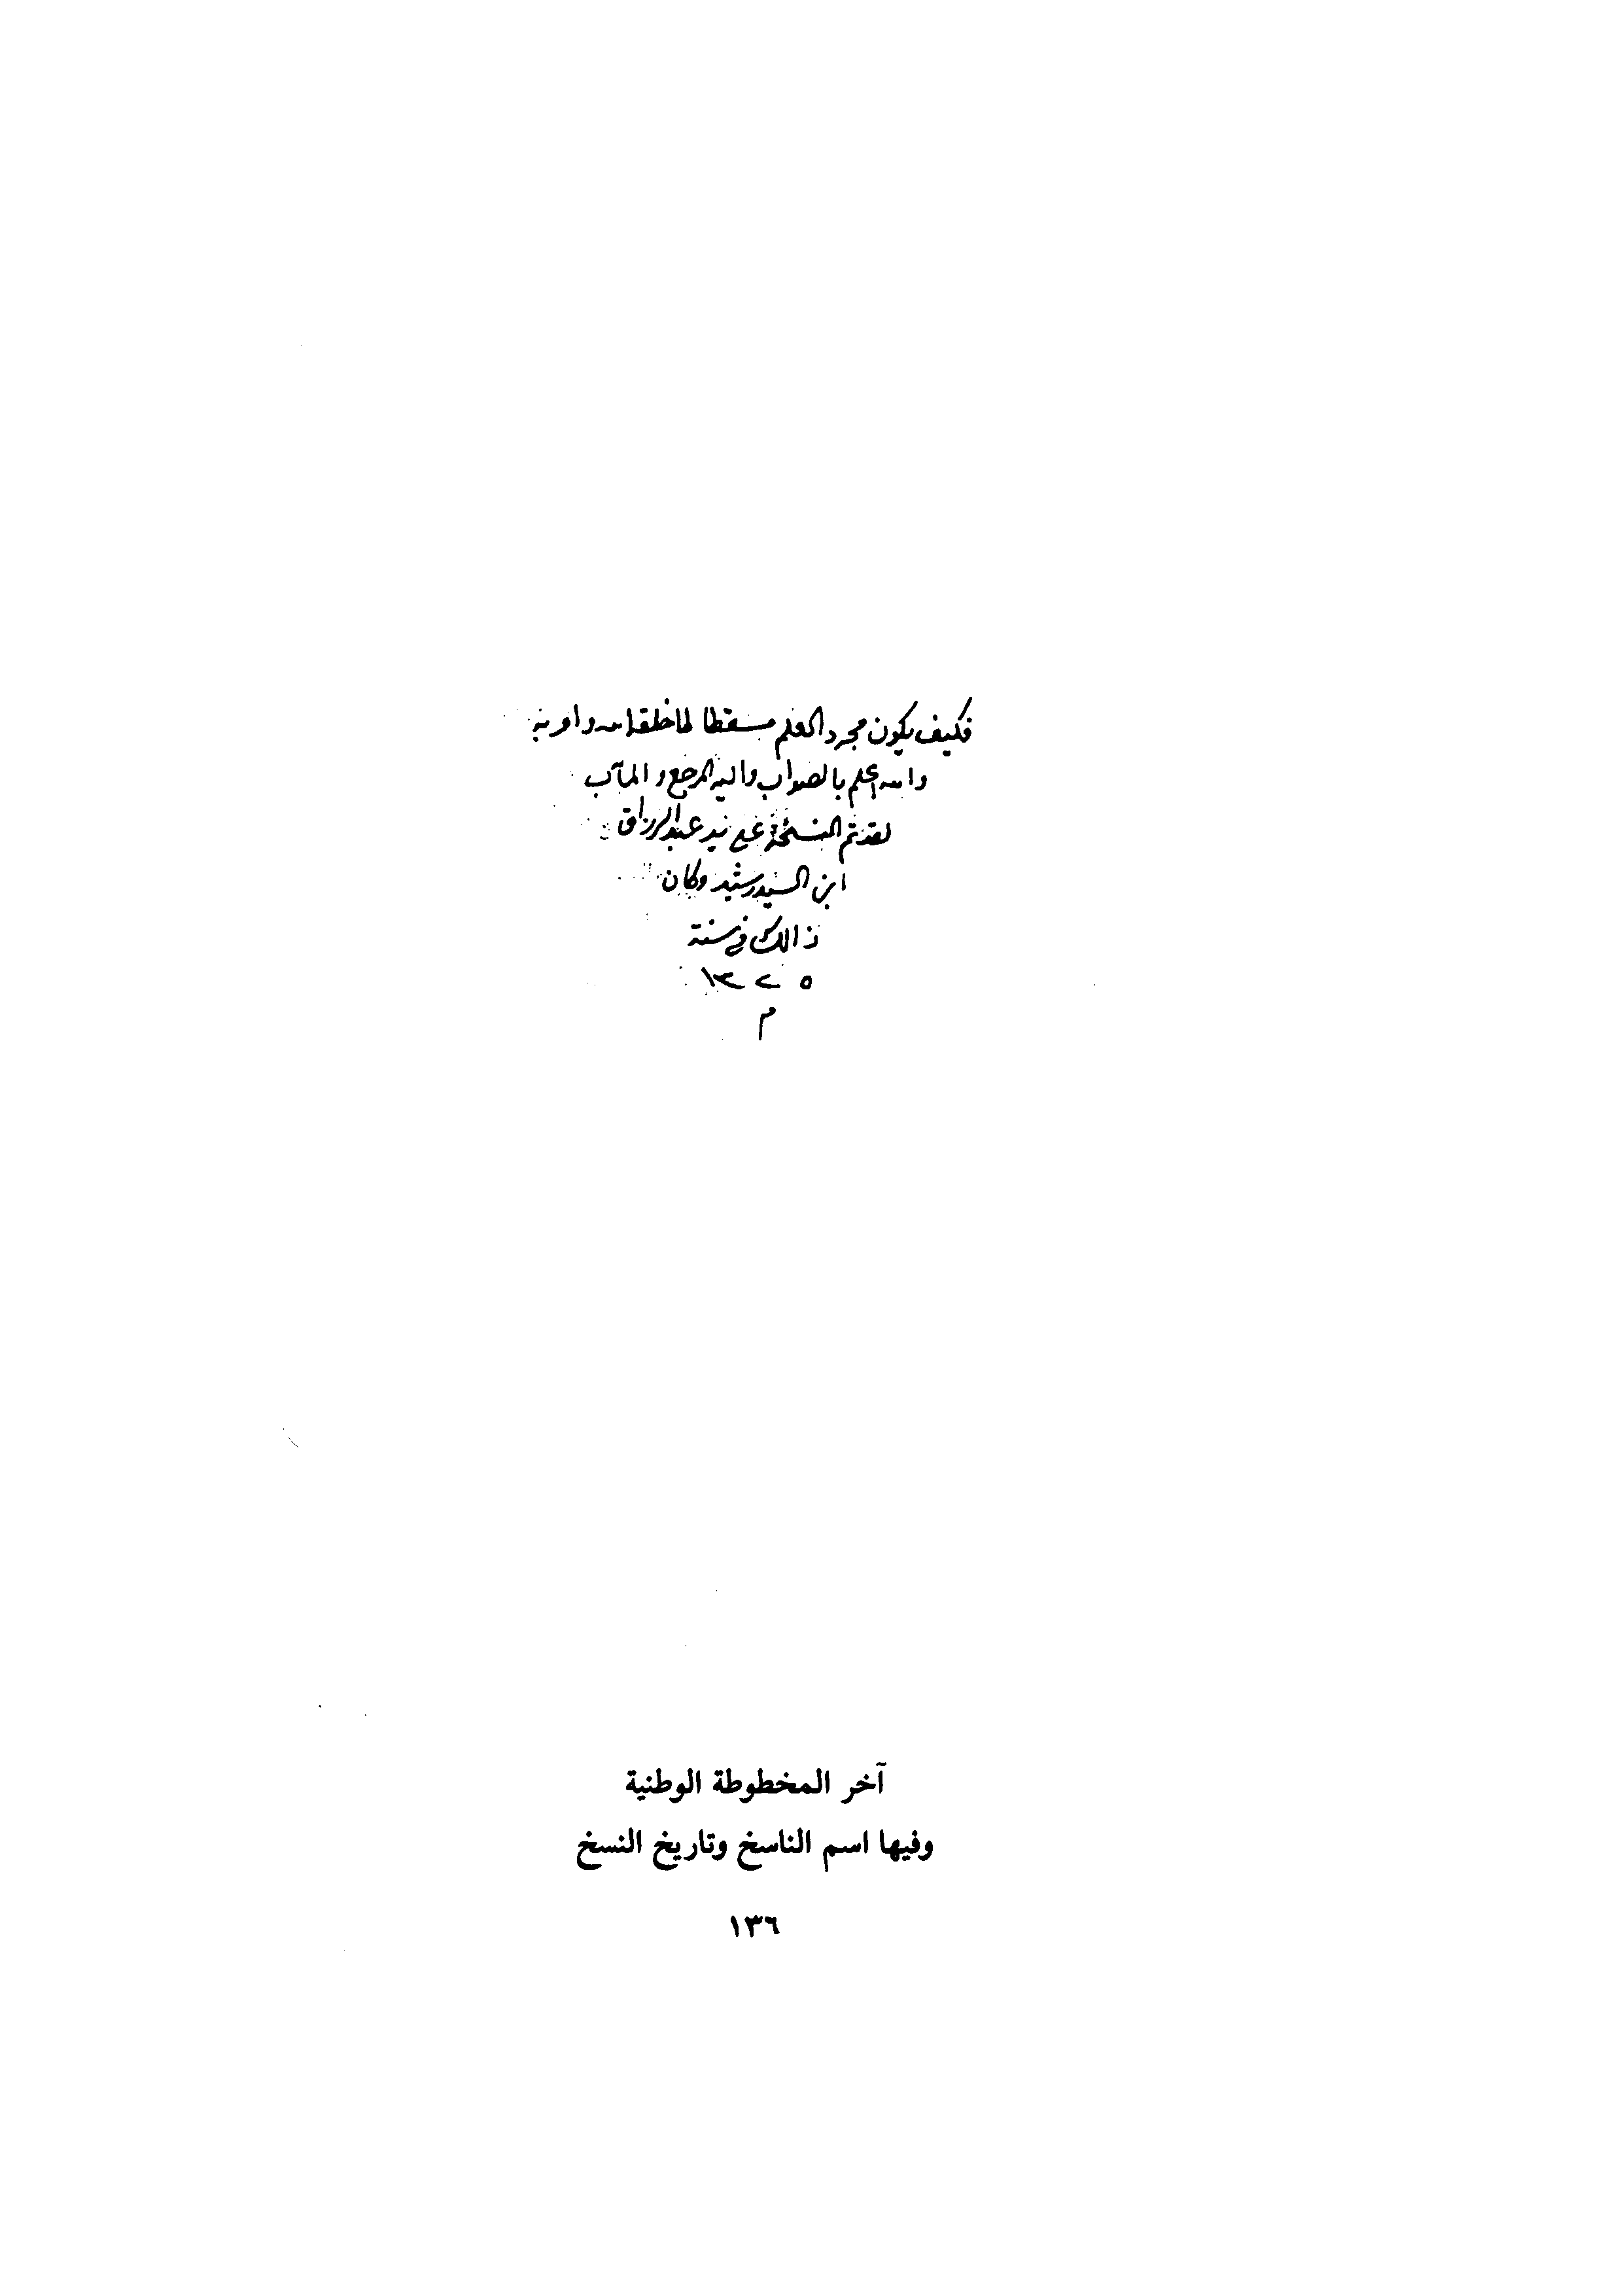 فكيف يكون مجرد العلم مسقطا لما خلقه الله وامر به
والله اعلم بالصواب واليه المرجع والمآب
لقد تم النسخة على يد عبد الرزاق
ابن السيد رشيد وكان
ذالك في سنة
١٣٢٥
م
آخر المخطوطة الوطنية
وفيها اسم الناسخ وتاريخ النسخ
١٣٦